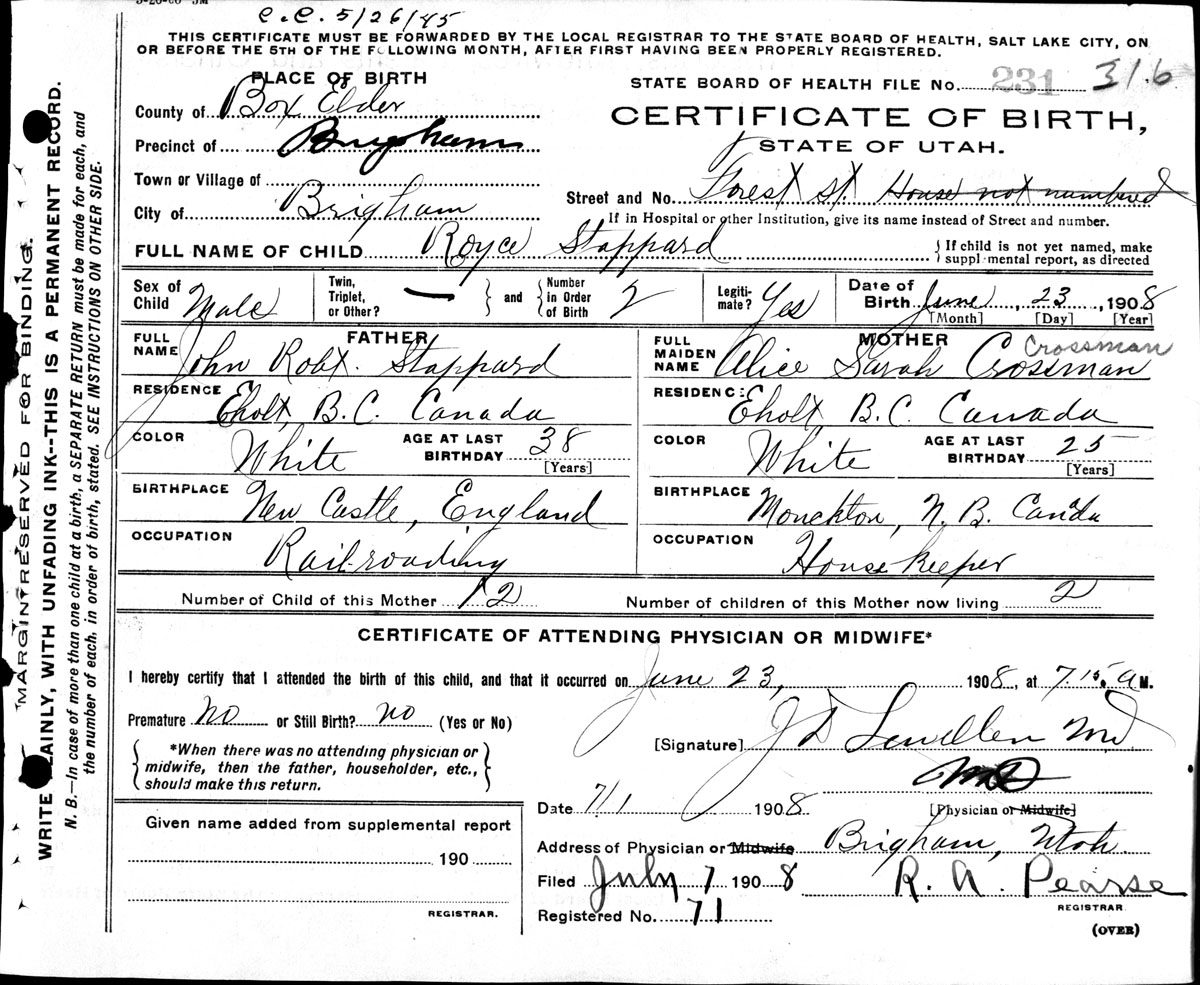 c.c. 5/26/45
THIS CERTIFICATE MUST BE FORWARDED BY THE LOCAL REGISTRAR TO THE STATE BOARD OF HEALTH, SALT LAKE CITY, ON
OR BEFORE THE 5TH OF THE FOLLOWING MONTH, AFTER FIRST HAVING BEEN PROPERLY REGISTERED.
PLACE OF BIRTH
STATE BOARD OF HEALTH FILE No. 231 316
County of Box Elder
CERTIFICATE OF BIRTH,
Precinct of Brigham
STATE OF UTAH.
Town or Village of
Street and No. Forest st. House not numbered
City of Brigham
If in Hospital or other Institution, give its name instead of Street and number.
FULL NAME OF CHILD Royce Stappard
{ If child is not yet named, make
supplemental report, as directed
Sex of Child Male
Twin, Triplet, or Other? — } and { Number in Order of Birth 2
Legitimate? Yes
Date of Birth June, 23, 1908
[Month] [Day] [Year]
FATHER
FULL NAME John Robt. Stappard
RESIDENCE Eholt, B.C. Canada
COLOR White AGE AT LAST BIRTHDAY 38
[Years]
BIRTHPLACE New Castle, England
OCCUPATION Railroading
MOTHER
Crossman
FULL MAIDEN NAME Alice Sarah Crossman
RESIDENCE: Eholt B.C. Canada
COLOR White AGE AT LAST BIRTHDAY 25
[Years]
BIRTHPLACE Monckton, N.B. Canda
OCCUPATION House Keeper
Number of Child of this Mother 12 Number of children of this Mother now living 2
CERTIFICATE OF ATTENDING PHYSICIAN OR MIDWIFE*
I hereby certify that I attended the birth of this child, and that it occurred on June 23, 1908, at 7.15 A M.
Premature no or Still Birth? no (Yes or No)
{ *When there was no attending physician or
midwife, then the father, householder, etc.,
should make this return. }
[Signature] J D Lewellen MD
MD
Date 7/1 1908 [Physician or Midwife]
Address of Physician or Midwife Brigham, Utah.
Filed July 7 1908 R. A. Pearse
REGISTRAR
Registered No. 71
(OVER)
Given name added from supplemental report
190
REGISTRAR.
MARGIN RESERVED FOR BINDING.
WRITE PLAINLY, WITH UNFADING INK--THIS IS A PERMANENT RECORD.
N. B.—In case of more than one child at a birth, a SEPARATE RETURN must be made for each, and
the number of each, in order of birth, stated. SEE INSTRUCTIONS ON OTHER SIDE.